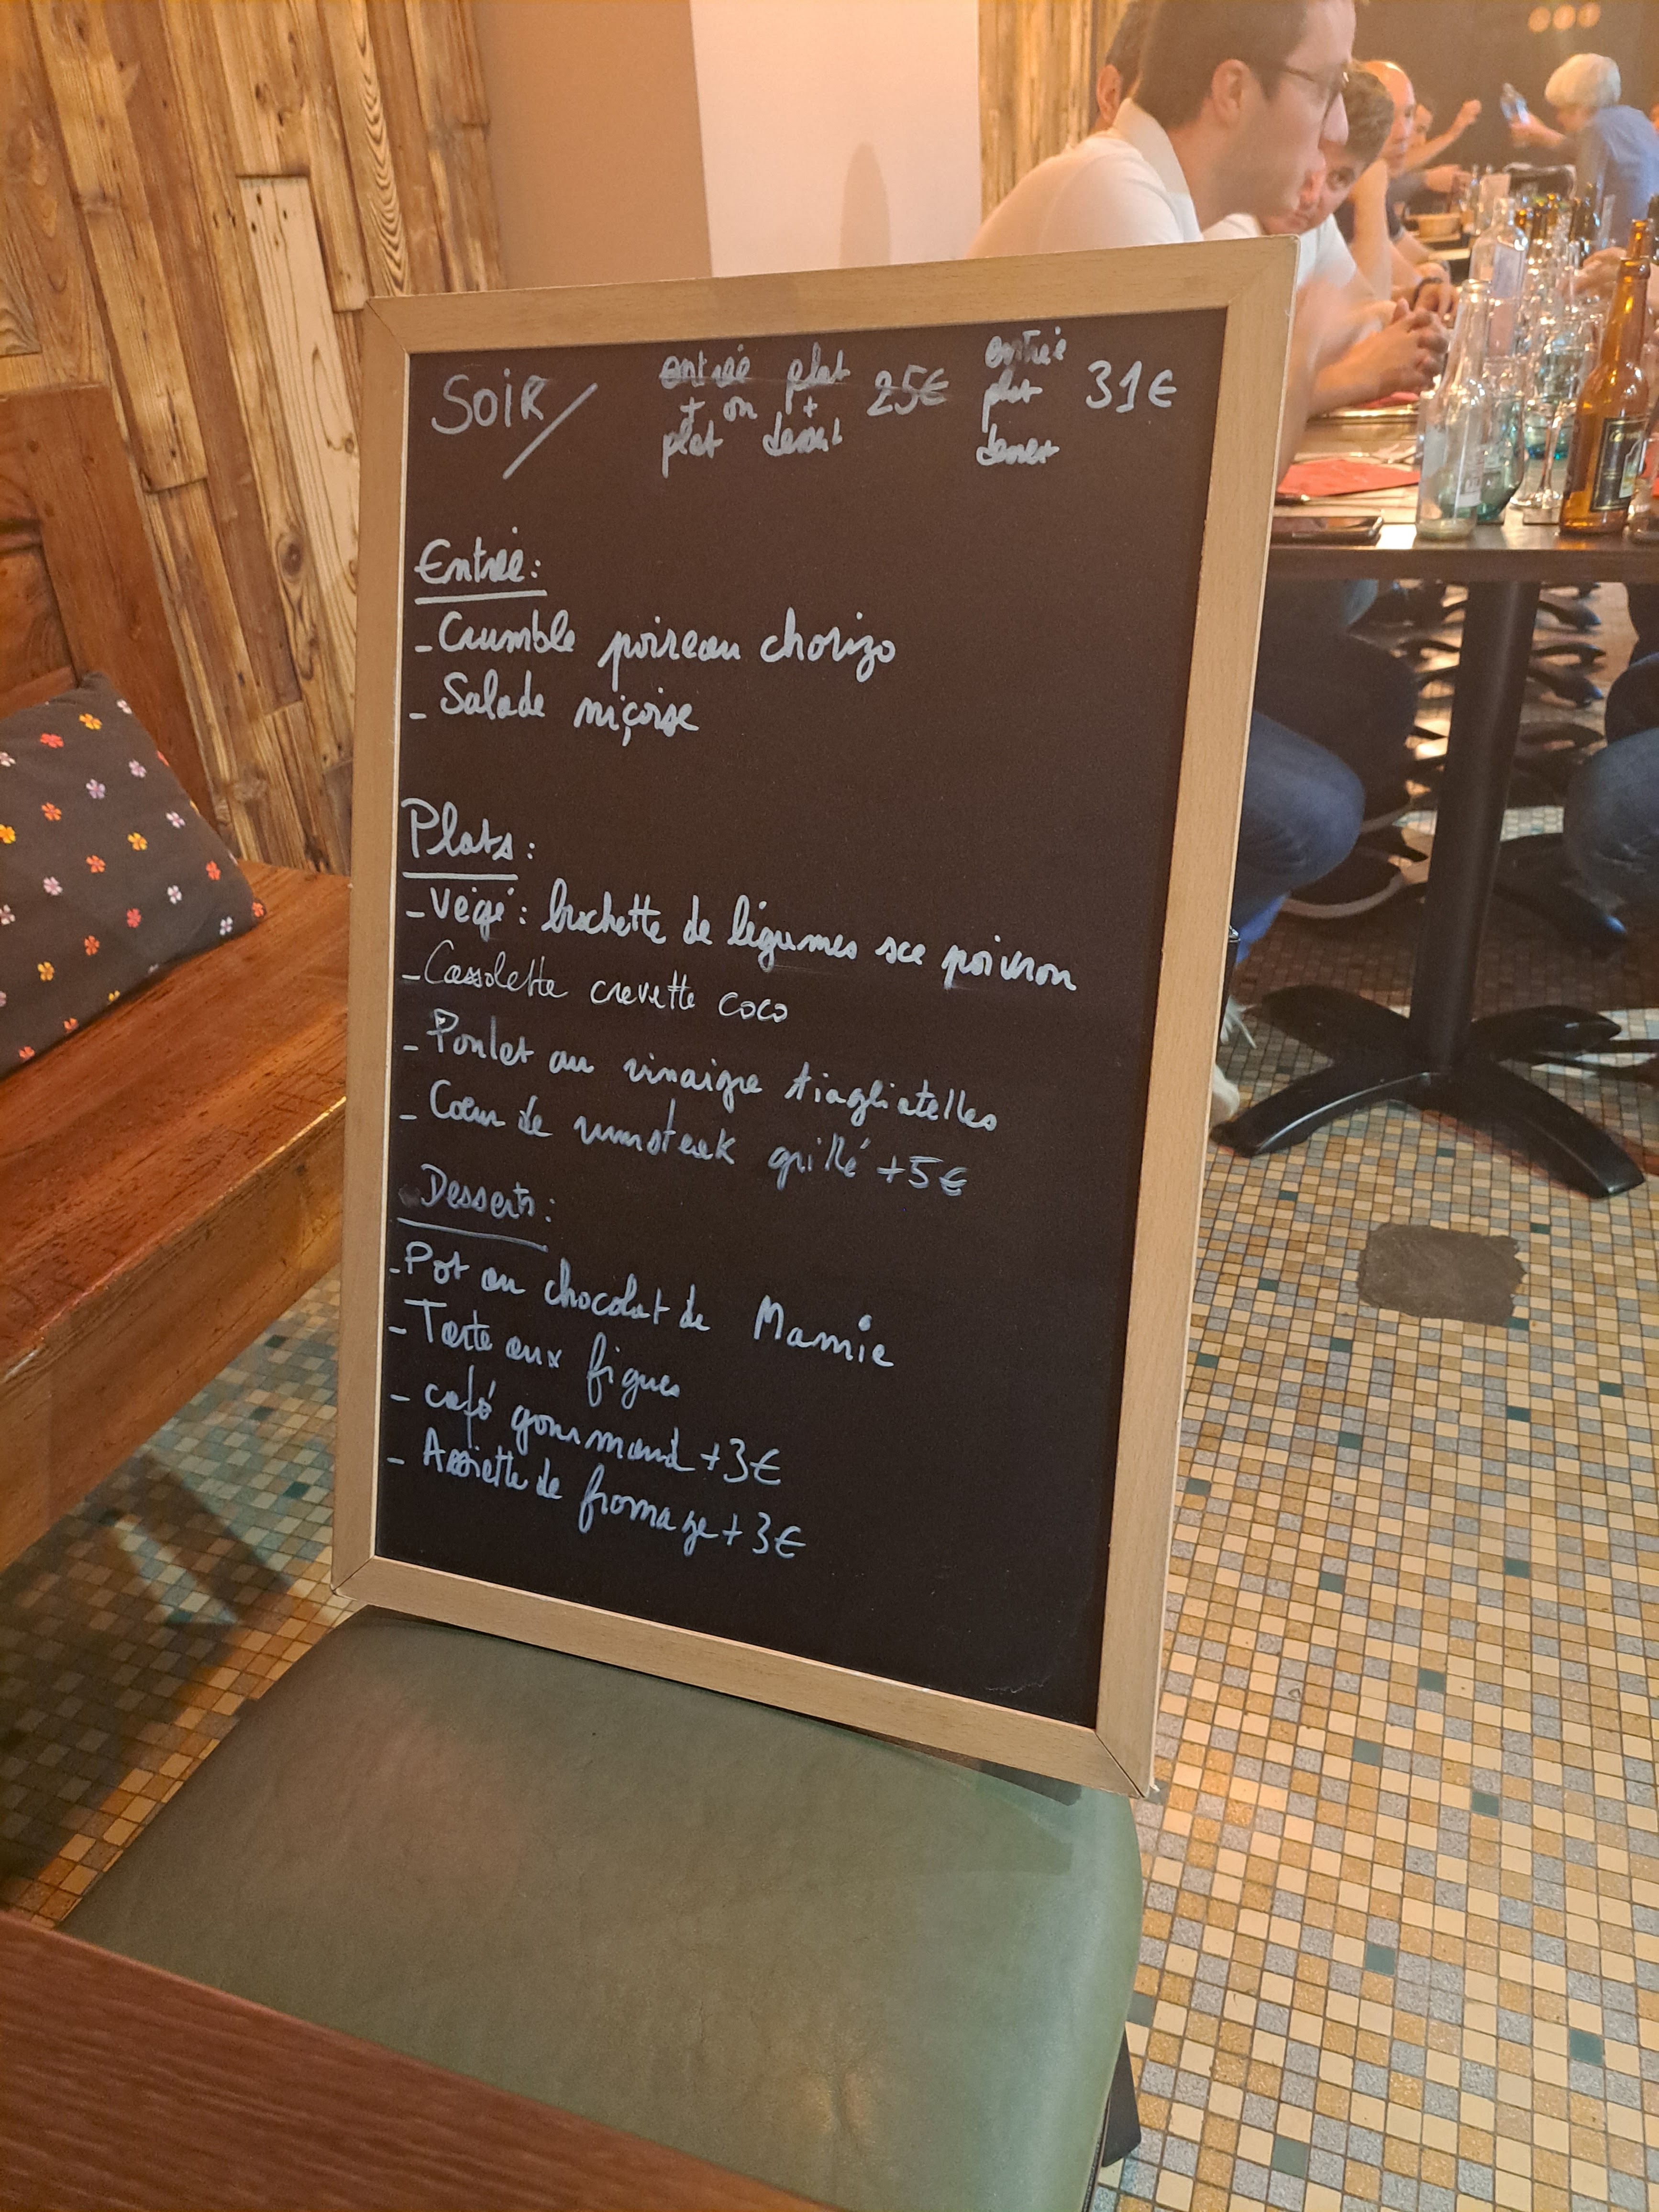 SOIR/
entrée + plat ou plat + dessert 25€
entrée plat dessert 31€
Entrée:
- Crumble poireau chorizo
- Salade niçoise
Plats:
- Végé: brochette de légumes sce poivron
- Cassolette crevette coco
- Poulet au vinaigre tiagliatelles
- Cœur de rumsteak grillé +5€
Desserts:
- Pot au chocolat de Mamie
- Tarte aux figues
- café gourmand +3€
- Assiette de fromage +3€